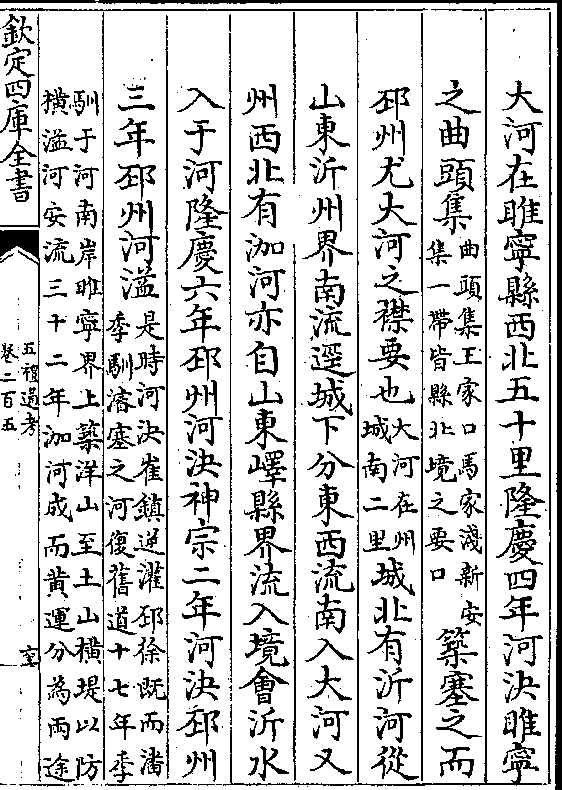 大河在睢寧縣西北五十里隆慶四年河決睢寧
之曲頭集曲頭集王家口馬家淺新安
集一帶皆縣北境之要口築塞之而
邳州尤大河之襟要也大河在州
城南二里城北有沂河從
山東沂州界南流逕城下分東西流南入大河又
州西北有泇河亦自山東嶧縣界流入境會沂水
入于河隆慶六年邳州河決神宗二年河決邳州
三年邳州河溢是時河決崔鎮逆灌邳徐既而潘
季馴濬塞之河復舊道十七年季
馴于河南岸睢寧界上築洋山至土山横堤以防
横溢河安流三十二年泇河成而黄運分為兩途
欽定四庫全書
五禮通考
卷二百五